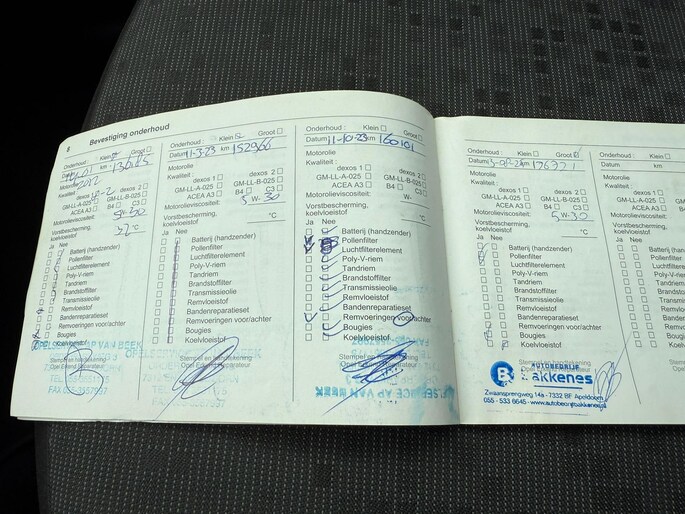 8
Bevestiging onderhoud
Onderhoud : Klein Groot
Datum km
Motorolie 2012
Kwaliteit :
dexos 1 dexos 2
GM-LL-A-025 GM-LL-B-025
ACEA A3 B4 C3
Motorolieviscositeit: 5W-30
Vorstbescherming,
koelvloeistof °C
Ja Nee
Batterij (handzender)
Pollenfilter
Luchtfilterelement
Poly-V-riem
Tandriem
Brandstoffilter
Transmissieolie
Remvloeistof
Bandenreparatieset
Remvoeringen voor/achter
Bougies
Koelvloeistof
Stempel en handtekening
Opel Erkend Reparateur
Onderhoud : Klein Groot
Datum 11-3-23 km 152966
Motorolie
Kwaliteit :
dexos 1 dexos 2
GM-LL-A-025 GM-LL-B-025
ACEA A3 B4 C3
Motorolieviscositeit: 5W-30
Vorstbescherming,
koelvloeistof °C
Ja Nee
Batterij (handzender)
Pollenfilter
Luchtfilterelement
Poly-V-riem
Tandriem
Brandstoffilter
Transmissieolie
Remvloeistof
Bandenreparatieset
Remvoeringen voor/achter
Bougies
Koelvloeistof
Stempel en handtekening
Opel Erkend Reparateur
Onderhoud : Klein Groot
Datum 11-10-23 km 160101
Motorolie
Kwaliteit :
dexos 1 dexos 2
GM-LL-A-025 GM-LL-B-025
ACEA A3 B4 C3
Motorolieviscositeit: W-
Vorstbescherming,
koelvloeistof °C
Ja Nee
Batterij (handzender)
Pollenfilter
Luchtfilterelement
Poly-V-riem
Tandriem
Brandstoffilter
Transmissieolie
Remvloeistof
Bandenreparatieset
Remvoeringen voor/achter
Bougies
Koelvloeistof
Stempel en handtekening
Opel Erkend Reparateur
AP VAN BEEK
Onderhoud : Klein Groot
Datum km 176371
Motorolie
Kwaliteit :
dexos 1 dexos 2
GM-LL-A-025 GM-LL-B-025
ACEA A3 B4 C3
Motorolieviscositeit: 5W-30
Vorstbescherming,
koelvloeistof °C
Ja Nee
Batterij (handzender)
Pollenfilter
Luchtfilterelement
Poly-V-riem
Tandriem
Brandstoffilter
Transmissieolie
Remvloeistof
Bandenreparatieset
Remvoeringen voor/achter
Bougies
Koelvloeistof
Stempel en handtekening
AUTOBEDRIJF
Bakkenes
Zwaansprengweg 14a - 7332 BF Apeldoorn
055 - 533 6645 - www.autobedrijfbakkenes.nl
Onderhoud :
Datum km
Motorolie
Kwaliteit :
dexos 1
GM-LL-A-025
ACEA A3
Motorolieviscositeit:
Vorstbescherming,
koelvloeistof
Ja Nee
Batterij (handzender)
Pollenfilter
Luchtfilterelement
Poly-V-riem
Tandriem
Brandstoffilter
Transmissieolie
Remvloeistof